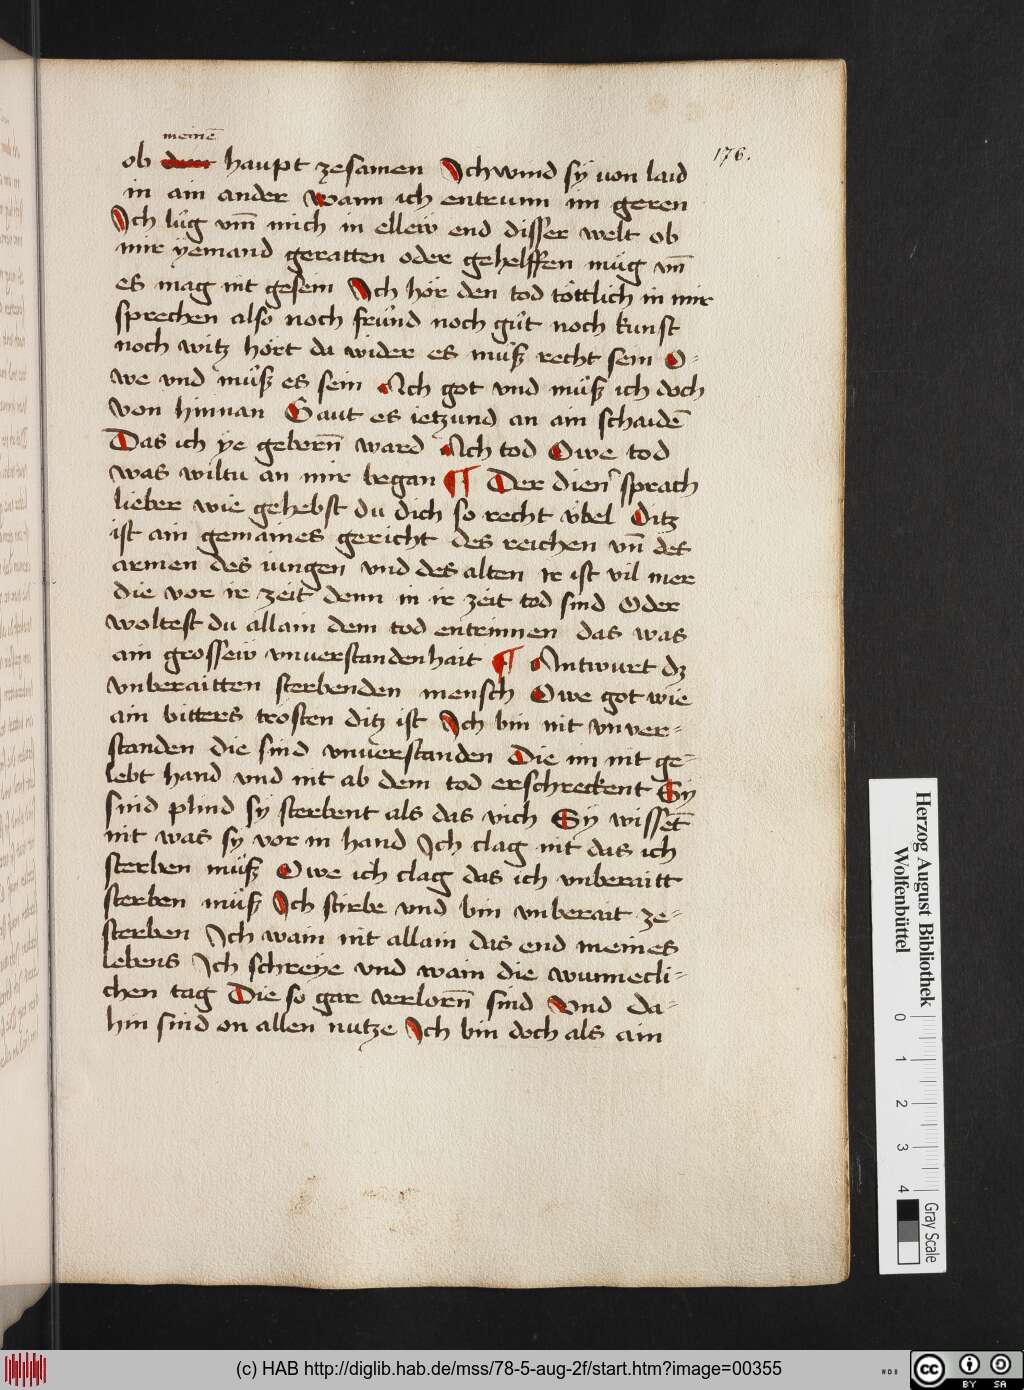 meinē
176.
ob diner haupt zesamen Ich wind sÿ uon laid
in ain ander wann ich entrunn im geren
Ich lůg vm̄ mich in ellew end disser welt ob
mir ÿemand geratten oder gehelffen můg vn̄
es mag nit gesein Ich hör den tod töttlich in mir
sprechen also noch frůnd noch gůt noch kunst
noch witz hört da wider es můß recht sein O⸗
we vnd můß es sein Ach got vnd můß ich doch
von hinnan Gaut es ietzund an ain schaidē
Das ich ye geborn̄ ward Ach tod Owe tod
was wiltu an mir began ¶ Der dien̓ sprach
lieber wie gehebst du dich so recht v̈bel Ditz
ist ain gemaines gericht des reichen vn̄ des
armen des iungen vnd des alten ir ist vil mer
die vor ir zeit denn in ir zeit tod sind Oder
woltest du allain dem tod entrinnen das was
ain grossew vnuerstandenhait ¶ Antwurt dz
vnberaitten sterbenden mensch Owe got wie
ain bitters trosten ditz ist Ich bin nit vnver⸗
standen die sind vnuerstanden Die im nit ge⸗
lebt hand vnd nit ab dem tod erschreckent Sy
sind plind sÿ sterbent als das vich Sÿ wissēt
nit was sÿ vor in hand Ich clag nit das ich
sterben můß Owe ich clag das ich vnberaitt
sterben můß Ich stirbe vnd bin vnberait ze⸗
sterben Ich wain nit allain das end meines
lebens Ich schreÿe vnd wain die wunnecli⸗
chen tag Die so gar verlorn̄ sind Vnd da⸗
hin sind on allen nutze Ich bin doch als ain
Herzog August Bibliothek
Wolfenbüttel
0
1
2
3
4
Gray Scale
(c) HAB http://diglib.hab.de/mss/78-5-aug-2f/start.htm?image=00355
WDB
cc
BY SA